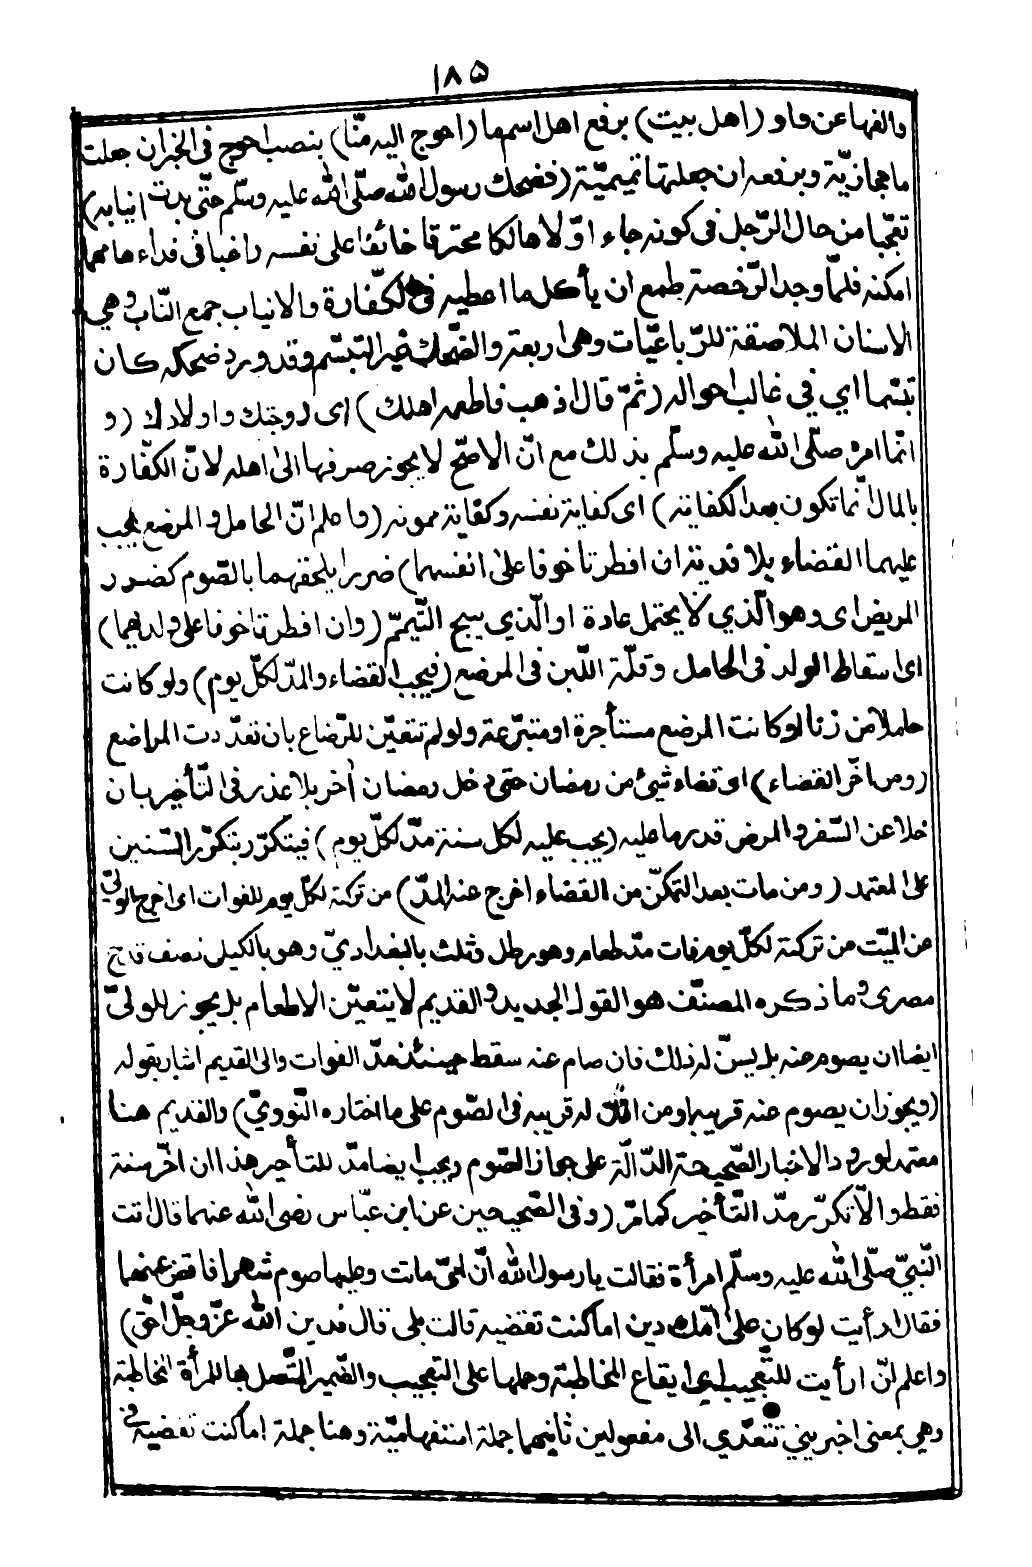 ١٨٥
فالفها عن واو (اهل بيت) برفع اهل اسم ما (احوج اليه منّا) بنصب احوج فى الخبر ان جعلت
ما حجازيّة وبرفعه ان جعلتها تميميّة (فضحك رسول الله صلّى الله عليه وسلّم حتّى بدت انيابه)
تعجّبا من حال الرّجل فى كونه جاء اوّلا هالكا محترقا خائفا على نفسه راغبا فى فداءها مهما
امكنه فلمّا وجد الرّخصة طمع ان يأكل ما اعطيه فى الكفّارة والانياب جمع النّاب وهي
الاسنان الملاصقة للرّباعيّات وهى اربعة والضّحك غير التبسّم وقد ورد ضحكه كان
تبسّما اي في غالب احواله (ثمّ قال اذهب فاطعمه اهلك) اى زوجتك واولادك (و
انّما امره صلّى الله عليه وسلّم بذلك مع انّ الاصحّ لا يجوز صرفها الى اهله لانّ الكفّارة
بالمال انّما تكون بعد الكفاية) اى كفاية نفسه وكفاية ممونه (واعلم انّ الحامل والمرضع يجب
عليهما القضاء بلا فدية ان افطرتا خوفا على انفسهما) ضررا يلحقهما بالصّوم كضرر
المريض اى وهو الّذي لا يحتمل عادة او الّذي يبيح التّيمّم (وان افطرتا خوفا على ولديهما)
اى اسقاط الولد فى الحامل وقلّة اللّبن فى المرضع (فيجب القضاء والمدّ لكلّ يوم) ولو كانت
حاملا من زنا لو كانت المرضع مستأجرة او متبرّعة ولو لم تتعيّن للرّضاع بان تعدّدت المراضع
(ومن اخّر القضاء) اى قضاء شيئ من رمضان حتى دخل رمضان اٰخر بلا عذر فى التّأخير بان
خلا عن السّفر والمرض قدر ما عليه (يجب عليه لكل سنة مدّ لكلّ يوم) فيتكرّر بتكرّر السّنين
على المعتمد (ومن مات بعد التمكّن من القضاء اخرج عنه المدّ) من تركته لكلّ يوم للفوات اى اخرج الوليّ
عن الميّت من تركته لكلّ يوم فات مدّ طعام وهو رطل وثلث بالبغداديّ وهو بالكيل نصف قدح
مصرى وما ذكره المصنّف هو القول الجديد والقديم لا يتعيّن الاطعام بل يجوز للولىّ
ايضا ان يصوم عنه بل يسنّ له ذلك فان صام عنه سقط حينئذ مدّ الفوات والى القديم اشار بقوله
(ويجوز ان يصوم عنه قريبه او من اذن له قريبه فى الصّوم على ما اختاره النّوويّ) والقديم هنا
معتمد لورود الاخبار الصّحيحة الدّالّة على جواز الصّوم ويجب ايضا مدّ للتأخير هذا ان اخّر سنة
فقط والّا تكرّر مدّ التّأخير كما مرّ (وفى الصّحيحين عن ابن عبّاس رضى الله عنهما قال اتت
النّبيّ صلّى الله عليه وسلّم امرأة فقالت يا رسول الله انّ امّى ماتت وعليها صوم شهر افاقض عنها
فقال ارأيت لو كان على امّك دين اما كنت تقضيه قالت بلى قال فدين الله عزّ وجلّ احقّ)
واعلم انّ ارأيت للتّعجيب اي ايقاع المخاطبة وحملها على التعجيب والضّمير المتّصل بها للمرأة المخاطبة
وهي بمعنى اخبريني تتعدّي الى مفعولين ثانيهما جملة استفهاميّة وهنا جملة اما كنت تقضيه فى